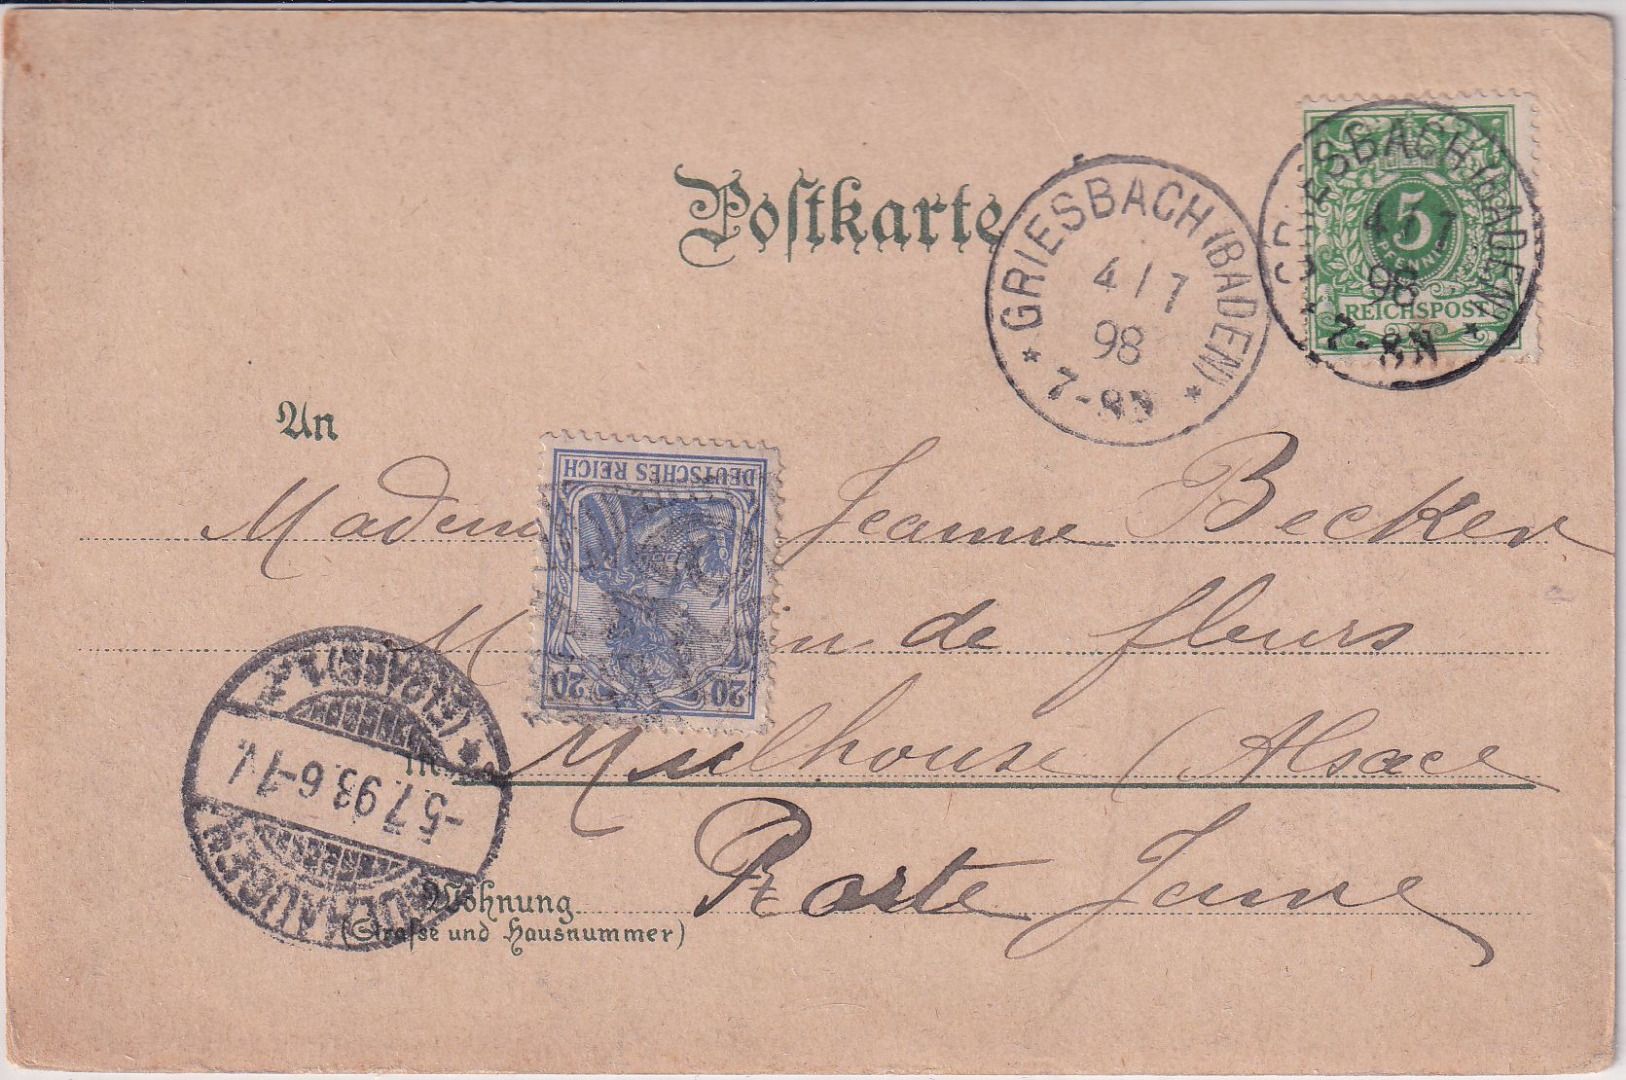 Postkarte
GRIESBACH (BADEN)
4/7
98
7-8N
GRIESBACH (BADEN)
4/7
98
7-8N
5
PFENNIG
REICHSPOST
An
DEUTSCHES REICH
20 20
Jeanne Becker
de fleurs
in Mulhouse (Alsace
Porte Jeune
Wohnung
(Straße und Hausnummer)
MÜLHAUSEN
(ELSASS) 1.
-5.7.98.6-7V.